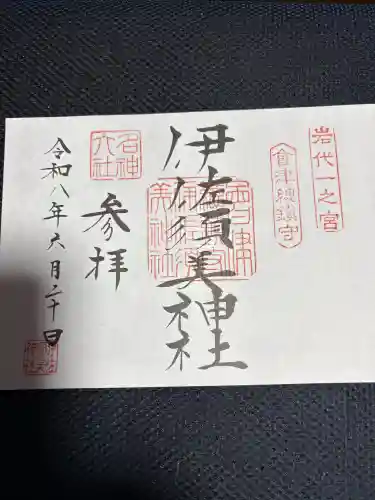 岩代一之宮
會津總鎮守
伊佐須美神社
名神大社
参拝
令和八年六月二十日